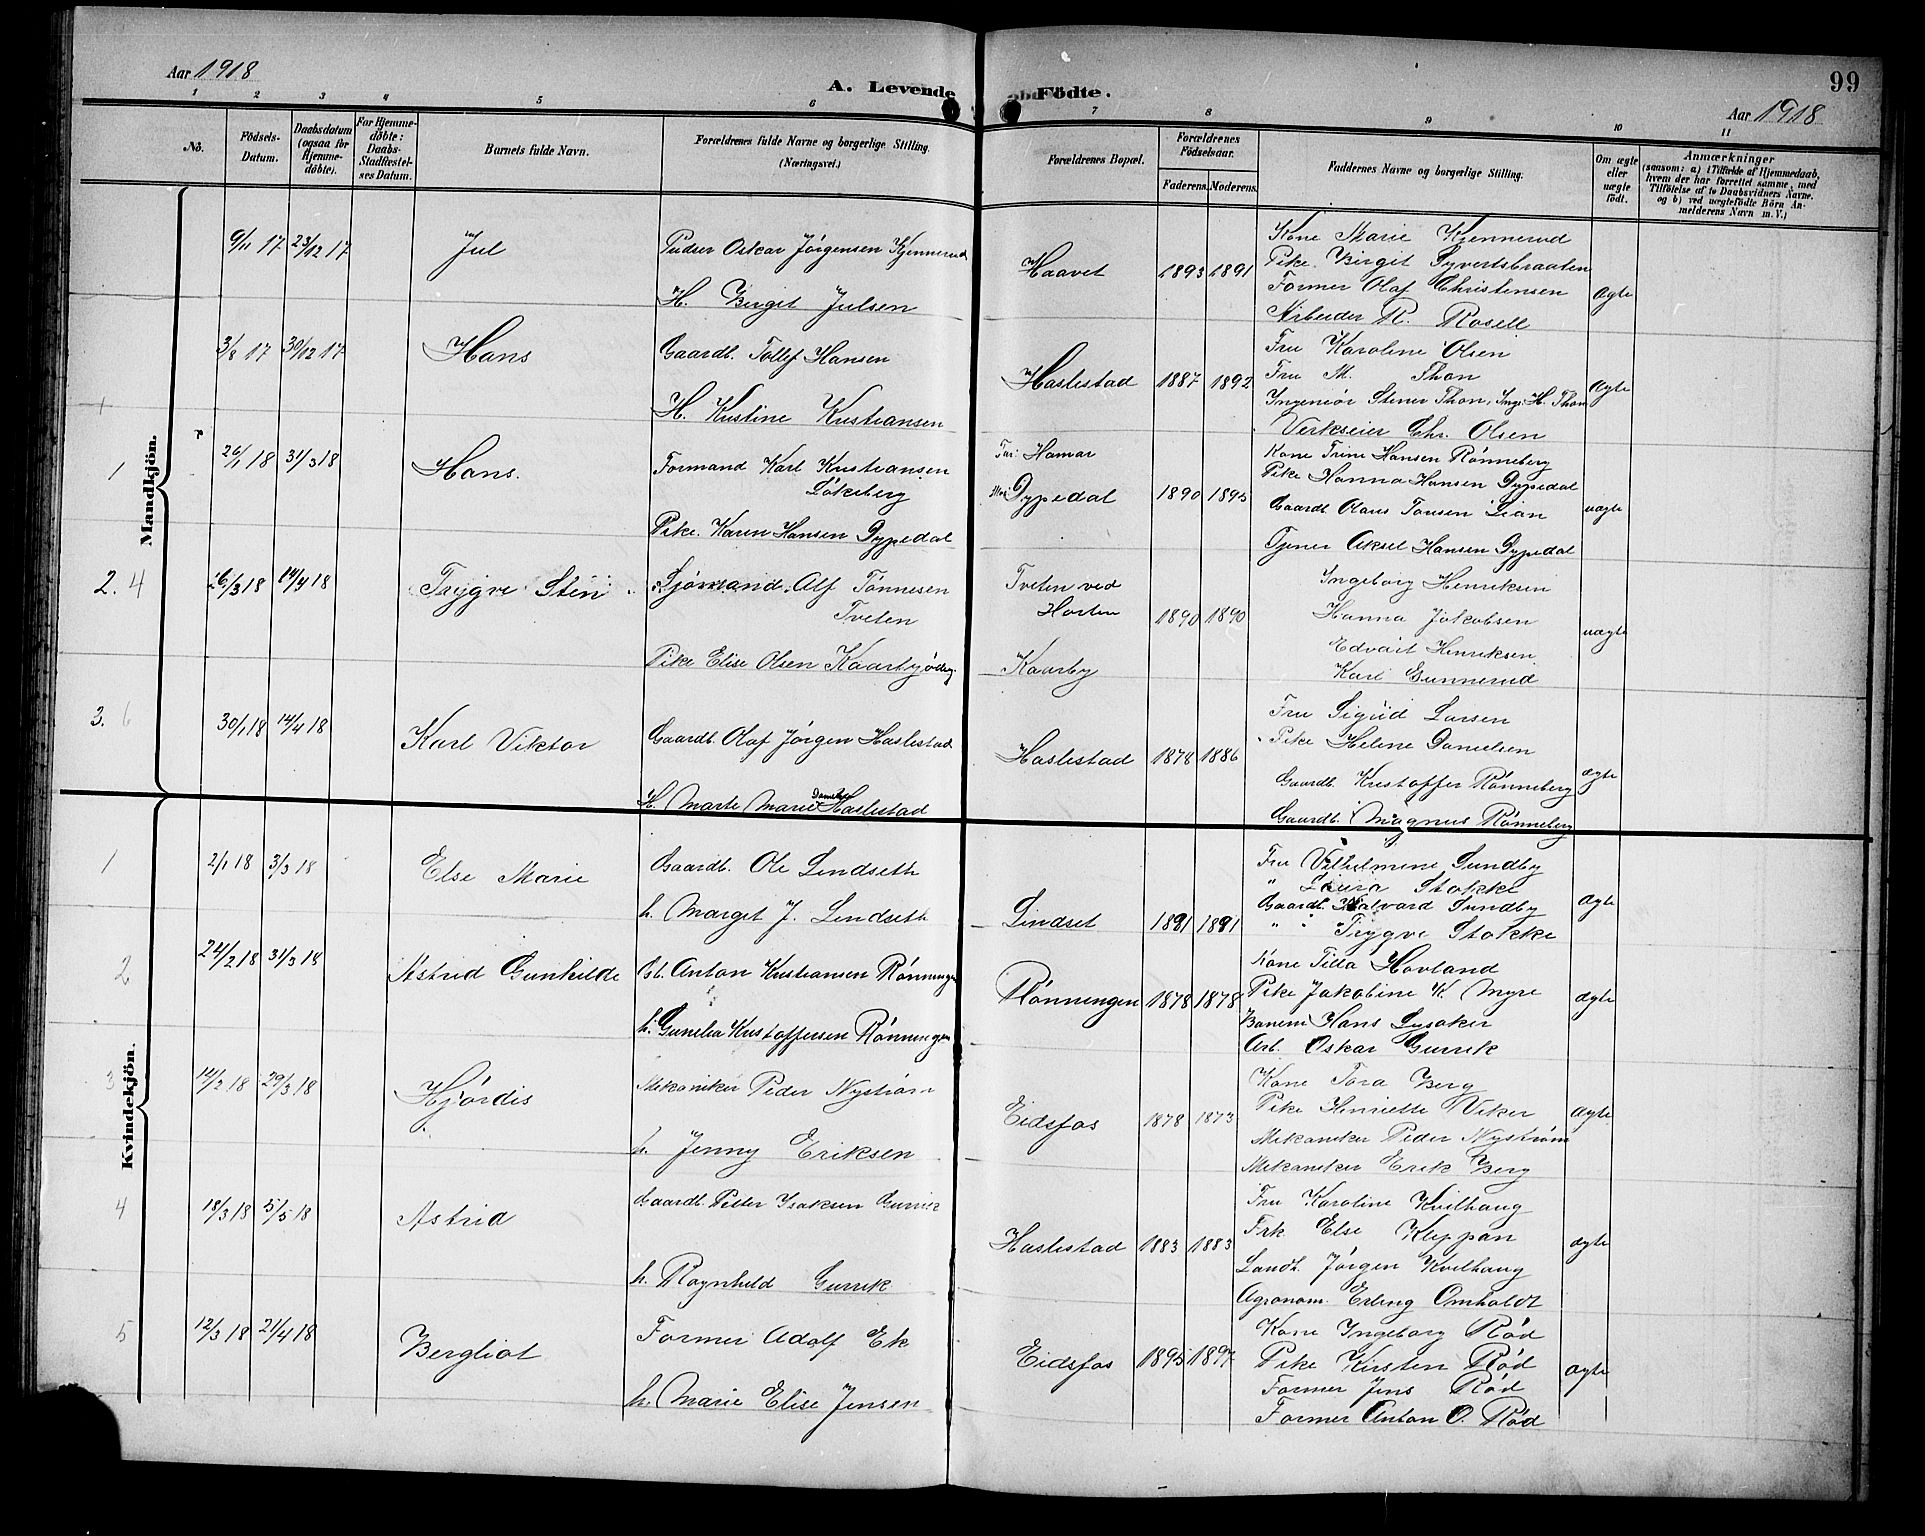 Aar 1918
A. Levende Födte.
99
Aar 1918
1 2 3 4 5 6 7 8 9 10 11
Nô.
Födsels-Datum.
Daabsdatum (ogsaa for Hjemme-döbte).
For Hjemme-döbte: Daabs-Stadfæstelses Datum.
Barnets fulde Navn.
Forældrenes fulde Navne og borgerlige Stilling. (Næringsvei.)
Forældrenes Bopæl.
Forældrenes Födselsaar.
Faderens. Moderens.
Faddernes Navne og borgerlige Stilling.
Om ægte eller uægte födt.
Anmærkninger (saasom: a) i Tilfælde af Hjemmedaab, hvem der har forrettet samme, med Tilföielse af to Daabsvidners Navne. og b) ved uægtefödte Börn Anmelderens Navn m. V.)
Mandkjön.
9/11 17 23/12 17 Jul
Pudser Oskar Jörgensen Kjennerud
H. Birgit Julsen
Haavet 1893 1891
Kone Marie Kjennerud
Pike Birgit Syvertsbraaten
Former Olaf Christensen
Arbeider R. Rosell
ægte
3/8 17 30/12 17 Hans
Gaardb. Tollef Hansen
H. Kristine Kristiansen
Haslestad 1887 1892
Fru Karoline Olsen
Fru M. Thon
Ingeniör Stener Thon, Ing. H. Thon
Verkseier Chr. Olsen
ægte
1 26/1 18 31/3 18 Hans.
Formand Karl Kristiansen
Löksberg
Pike. Karen Hansen Dypedal
Far: Hamar
Mor: Dypedal 1890 1895
Kone Trine Hansen Rönneberg
Pike Hanna Hansen Dypedal
Gaardb. Olaus Tonsen Lian
Tjener Aksel Hansen Dypedal
uægte
2. 4 16/3 18 14/4 18 Trygve Sten
Sjömand Alf Tönnesen
Tveten
Pike Elise Olsen Kaarby
Tveten ved
Horten
Kaarby
1890 1890
Ingeborg Henriksen
Hanna Jakobsen
Edvart Henriksen
Kari Gunnerud
uægte
3. 6 30/1 18 14/4 18 Karl Viktor
Gaardb. Olaf Jörgen Haslestad
H. Marte Marie Haslestad
Haslestad 1878 1886
Fru Sigrid Larsen
Pike Helene Danielsen
Gaardb. Kristoffer Rönneberg
Gaardb. Magnus Rönneberg
ægte
Kvindekjön.
1 2/1 18 3/3 18 Else Marie
Gaardb. Ole Lindseth
h. Margit J. Lindseth
Lindset 1881 1891
Fru Vilhelmine Sundby
" Laura Stokke
Gaardb. Halvard Sundby
" " Trygve Stokke
ægte
2 24/2 18 31/3 18 Astrid Gunhilde
Gb. Anton Kristiansen Rönningen
h. Gunelia Kristoffersen Rönningen
Rönningen 1878 1878
Kone Tilla Hovland
Pike Jakobine K. Myre
Banem. Hans Lysaker
Arb. Oskar Gurrik
ægte
3 14/2 18 29/3 18 Hjördis
Mekaniker Peder Nyström
h. Jenny Eriksen
Eidsfos 1878 1873
Kone Tora Berg
Pike Henriette Viker
Mekaniker Peder Nyström
Mekaniker Erik Berg
ægte
4 18/3 18 5/5 18 Astrid
Gaardb. Petter Isaksen Gurrik
h. Ragnhild Gurrik
Haslestad 1883 1883
Fru Karoline Kvilhaug
Frk. Else Kleppan
Landh. Jörgen Kvilhaug
Agronom. Erling Omholdt
ægte
5 12/3 18 21/4 18 Bergliot
Former Adolf Ek
h. Marie Elise Jensen
Eidsfos 1895 1897
Kone Ingeborg Röd
Pike Kirsten Röd
Former Jens Röd
Former Anton O. Röd
ægte